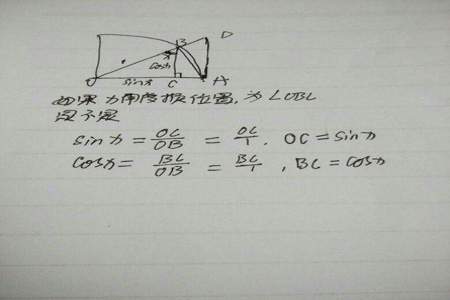 B D
cosx
O sinx C A
如果x角度换位置,为∠OBC
设不定
sinx = OC/OB = OC/1, OC = sinx
cosx = BC/OB = BC/1, BC = cosx